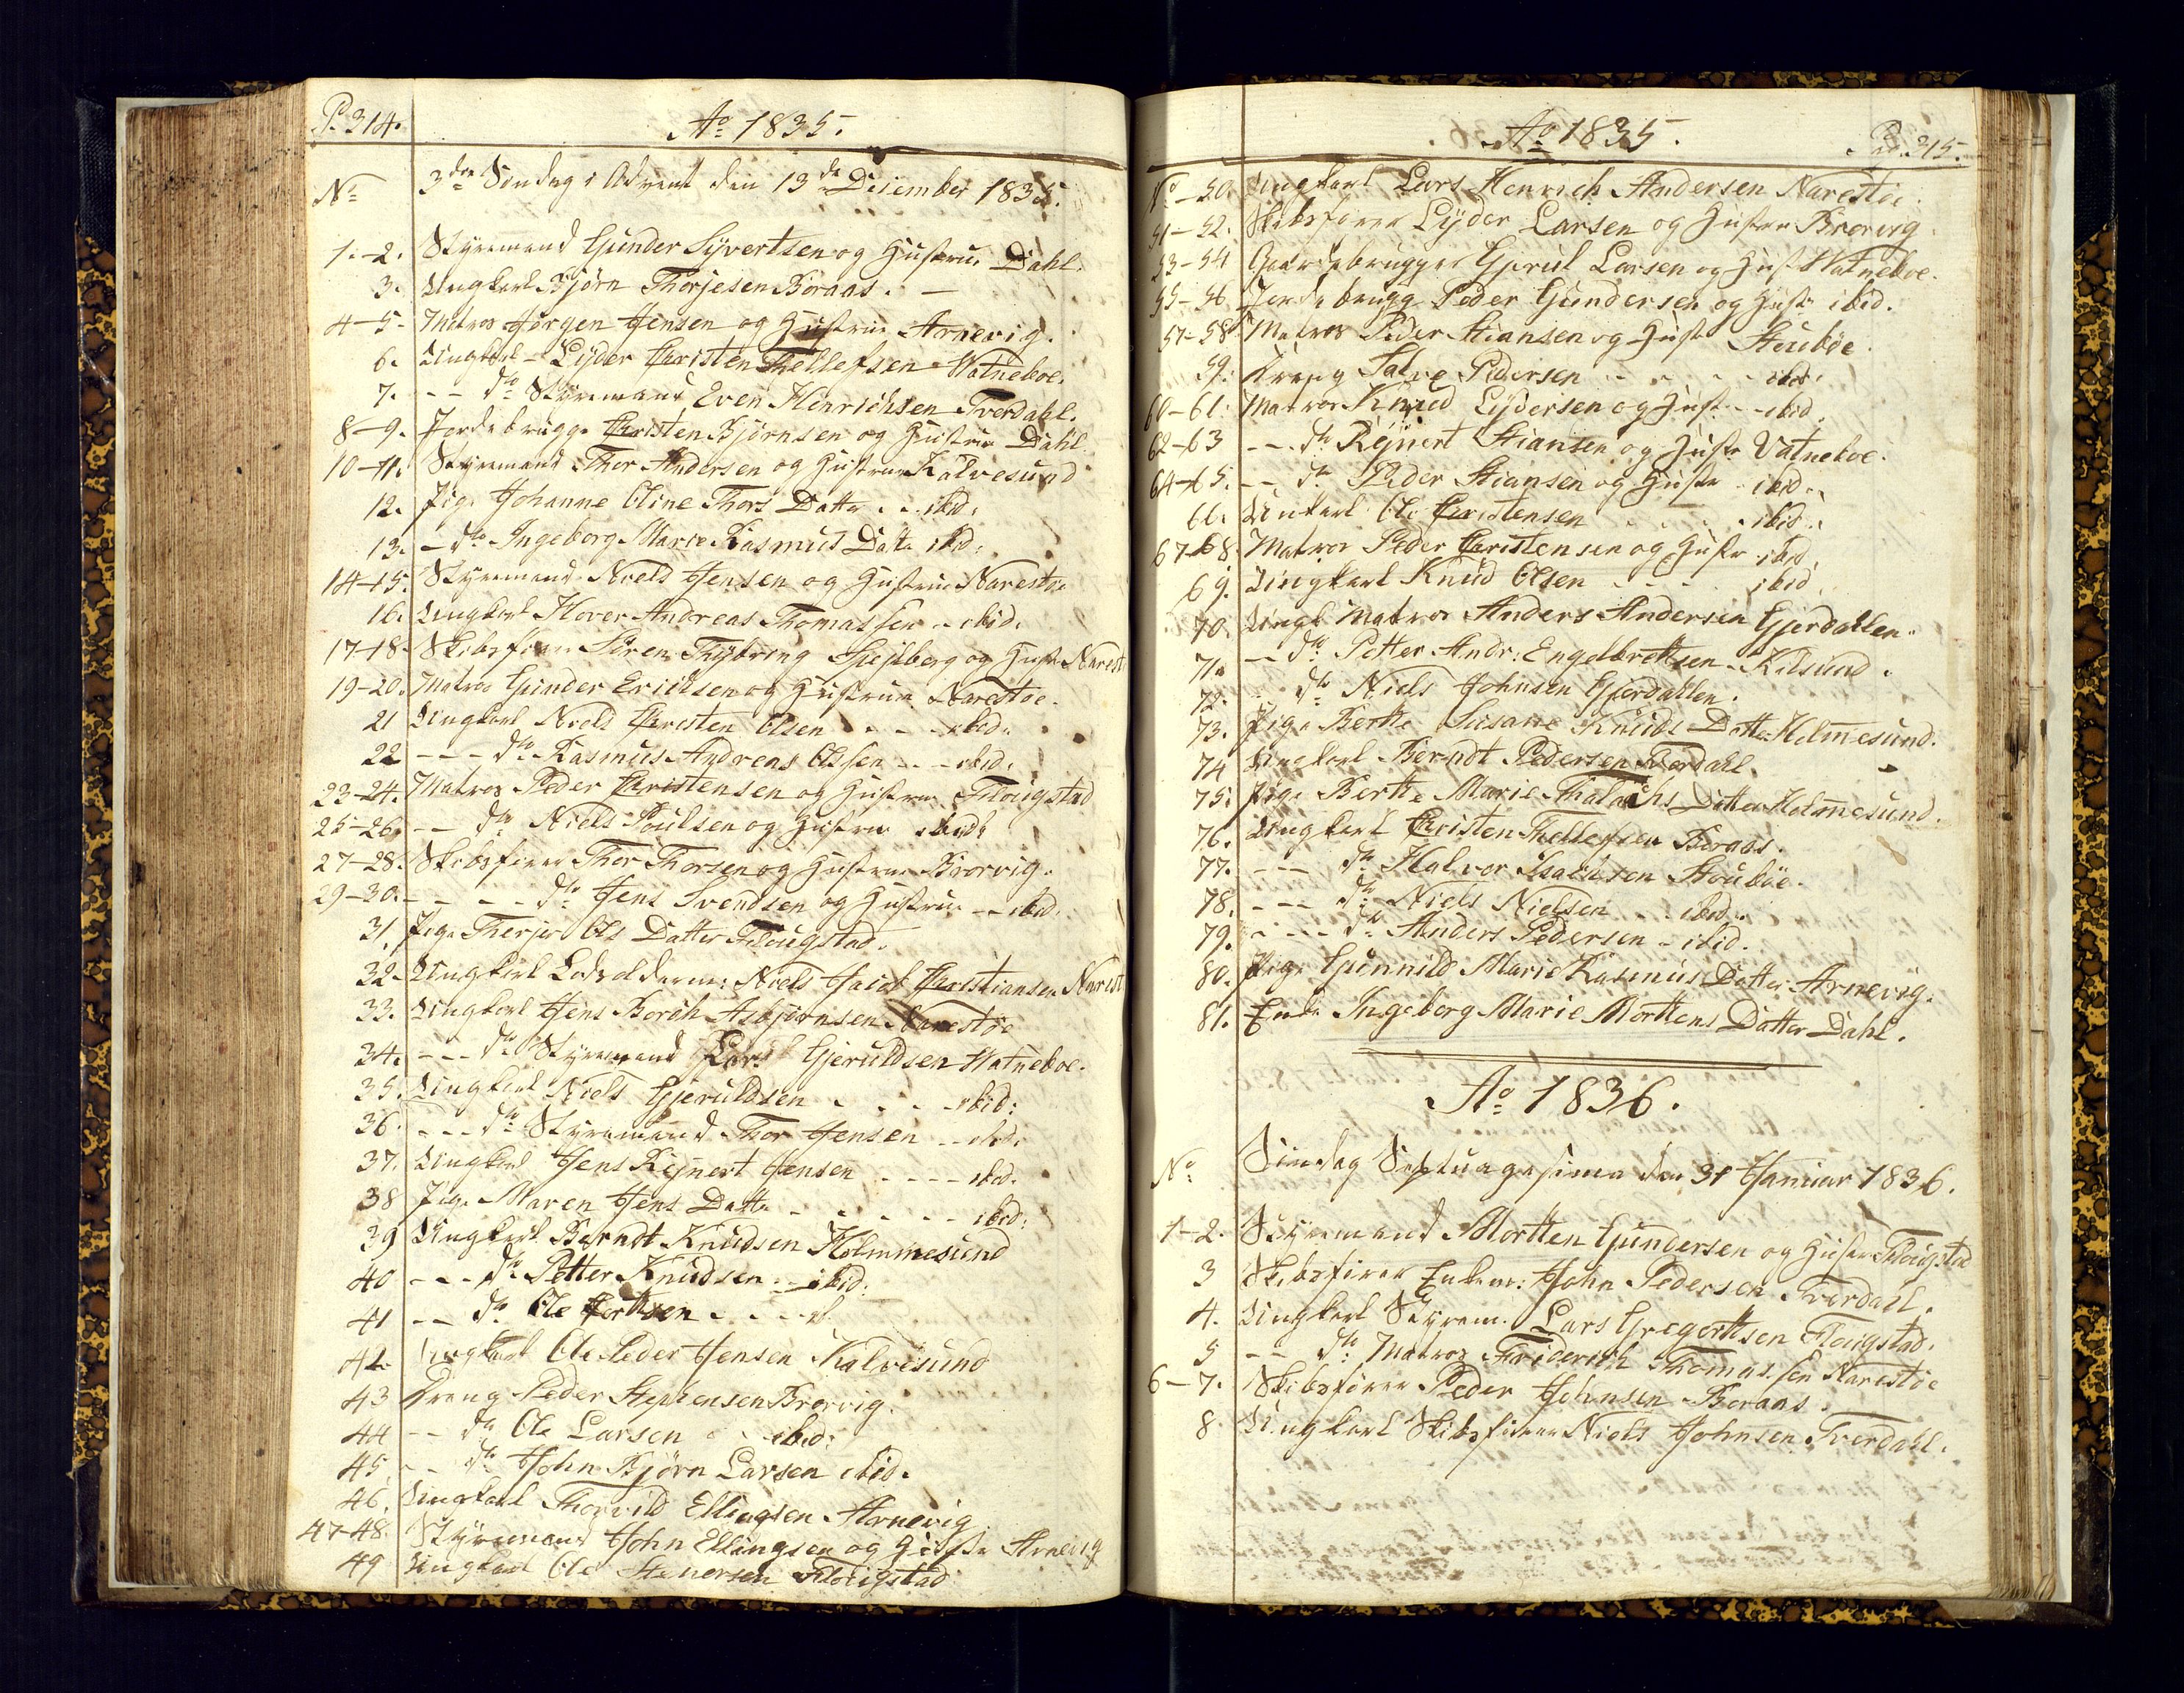 P. 314.
Ao 1835.
No
3die Søndag i Advent den 13de Desember 1835.
1.-2. Styremand Gunder Syvertsen og Hustrue Dahl.
3. Ungkarl Bjørn Thorjesen Boraas.
4-5. Matros Jørgen Jensen og Hustrue Arnevig.
6. Ungkarl Lyder Christen Thellefsen Watneboe.
7. -- do Styremand Even Henrichsen Tverdahl.
8-9. Jordebrugg. Christen Bjørnsen og Hustrue Dahl.
10-11. Styremand Thor Andersen og Hustrue Kalvesund
12. Pige Johanne Oline Thors Datter .. ibid.
13. - do Ingeborg Marie Rasmus Datter ibid.
14-15. Styremand Niels Jensen og Hustrue Narestøe
16. Ungkarl Hover Andreas Thomassen .. ibid.
17-18. Skibsfører Søren Thybring Spejlberg og Hustr. Narest
19-20. Matros Gunder Erichsen og Hustrue Narestøe.
21 Ungkarl Niels Christen Olsen - - - ibid.
22 - - - do Rasmus Andreas Olssen - - ibid.
23-24. Matros Peder Christensen og Hustrue Flougstad
25-26. -- do Niels Poulsen og Hustrue ibid.
27-28. Skibsfører Thor Thorsen og Hustrue Krorvig.
29-30. - - - - do Jens Svendsen og Hustrue -- ibid.
31. Pige Therjer Ols Datter Flougstad.
32. Ungkarl Niels Jacob Christiansen Narest
33. Ungkarl Jens Borch Asbjørnsen Narestøe
34. - - - do Styremand Lars Gjeruldsen Watneboe.
35. Ungkarl Niels Gjeruldsen - - - ibid:
36. - - - do Styremand Thor Jensen -- ibid.
37. Ungkarl Jens Rejnert Jensen - - - - ibid.
38 Pige Maren Jens Datter - - - - - - ibid:
39 Ungkarl Berndt Knudsen Holmmesund
40 - - - do Petter Knudsen - - ibid:
41 -- do Ole
42. Ungkarl Ole Peder Jensen Kalvesund
43 Dreng Peder Stephensen Krorvig.
44 -- do Ole Larsen - - ibid:
45. - - do John Bjørn Larsen ibid.
46. Ungkarl Thorvild Ellingsen Arnevig
47-48. Styremand John Ellingsen og Hustr. Arnevig
49 Ungkarl Ole Stenersen Flougstad
Ao 1835.
Pag. 315.
No - 50. Ungkarl Lars Henrich Andersen Narestøe.
51-52. Skibsfører Lyder Larsen og Hustrue Krorvig.
53-54 Gaardebrugger Gjerul Larsen og Hust Watneboe.
55-56. Jordebrugg. Peder Gundersen og Hustr ibid.
57-58 Matros Peder Stiansen og Hustr Stoubøe.
59. Dreng Salve Pedersen - - - - ibid.
60-61. Matros Knud Lydersen og Hust - - ibid.
62-63 -- do Rejnert Stiansen og Hustr Vatneboe.
64-65. -- do Peder Stiansen og Hustr .. ibid.
66. Unkarl Ole Christensen - - - - ibid.
67-68. Matros Peder Christensen og Hustr ibid.
69. Ungkarl Knud Olsen - - - - ibid.
70. Ungk Matros Anders Andersen Gjerdallen.
71. -- do Petter Andr: Engelbretsen Kilsund.
72. -- do Niels Johnsen Gjerdallen.
73. Pige Berthe Susane Knuds Datter Holmesund.
74 Ungkarl Berndt Pedersen Tverdahl.
75. Pige Berthe Marie Thalachs Datter Holmesund.
76. Ungkarl Christen Thellefsen Boraas.
77. - - - do Halvor Isachsen Stoubøe.
78. - - - do Niels Nielsen - - ibid.
79. - - - do Anders Pedersen - ibid.
80. Pige Gunnild Marie Rasmus Datter Arnevig.
81. Enke Ingeborg Marie Morttens Datter Dahl.
Ao 1836.
No
Søndag Septuagesima den 31 Januar 1836.
1-2. Styremand Mortten Gundersen og Hustr Flougstad
3 Skibsfører Enkem: John Pedersen Tverdahl.
4. Ungkarl Styrem. Lars Gregertsen Flougstad.
5 -- do Matros Friderich Thomassen Narestøe
6-7. Skibsfører Peder Johnsen Boraas.
8. Ungkarl Skibsfører Niels Johnsen Tverdahl.